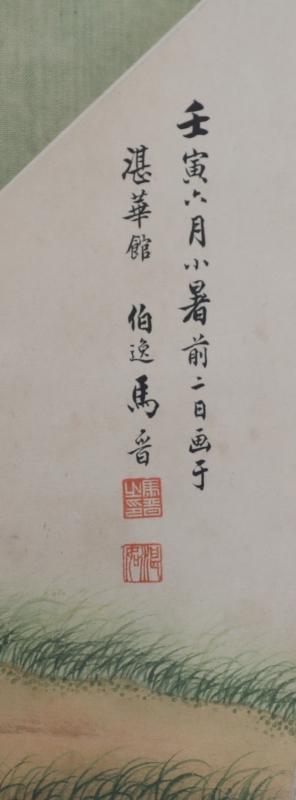 壬寅六月小暑前二日画于
湛華館 伯逸馬晉
馬晉之印
湛如